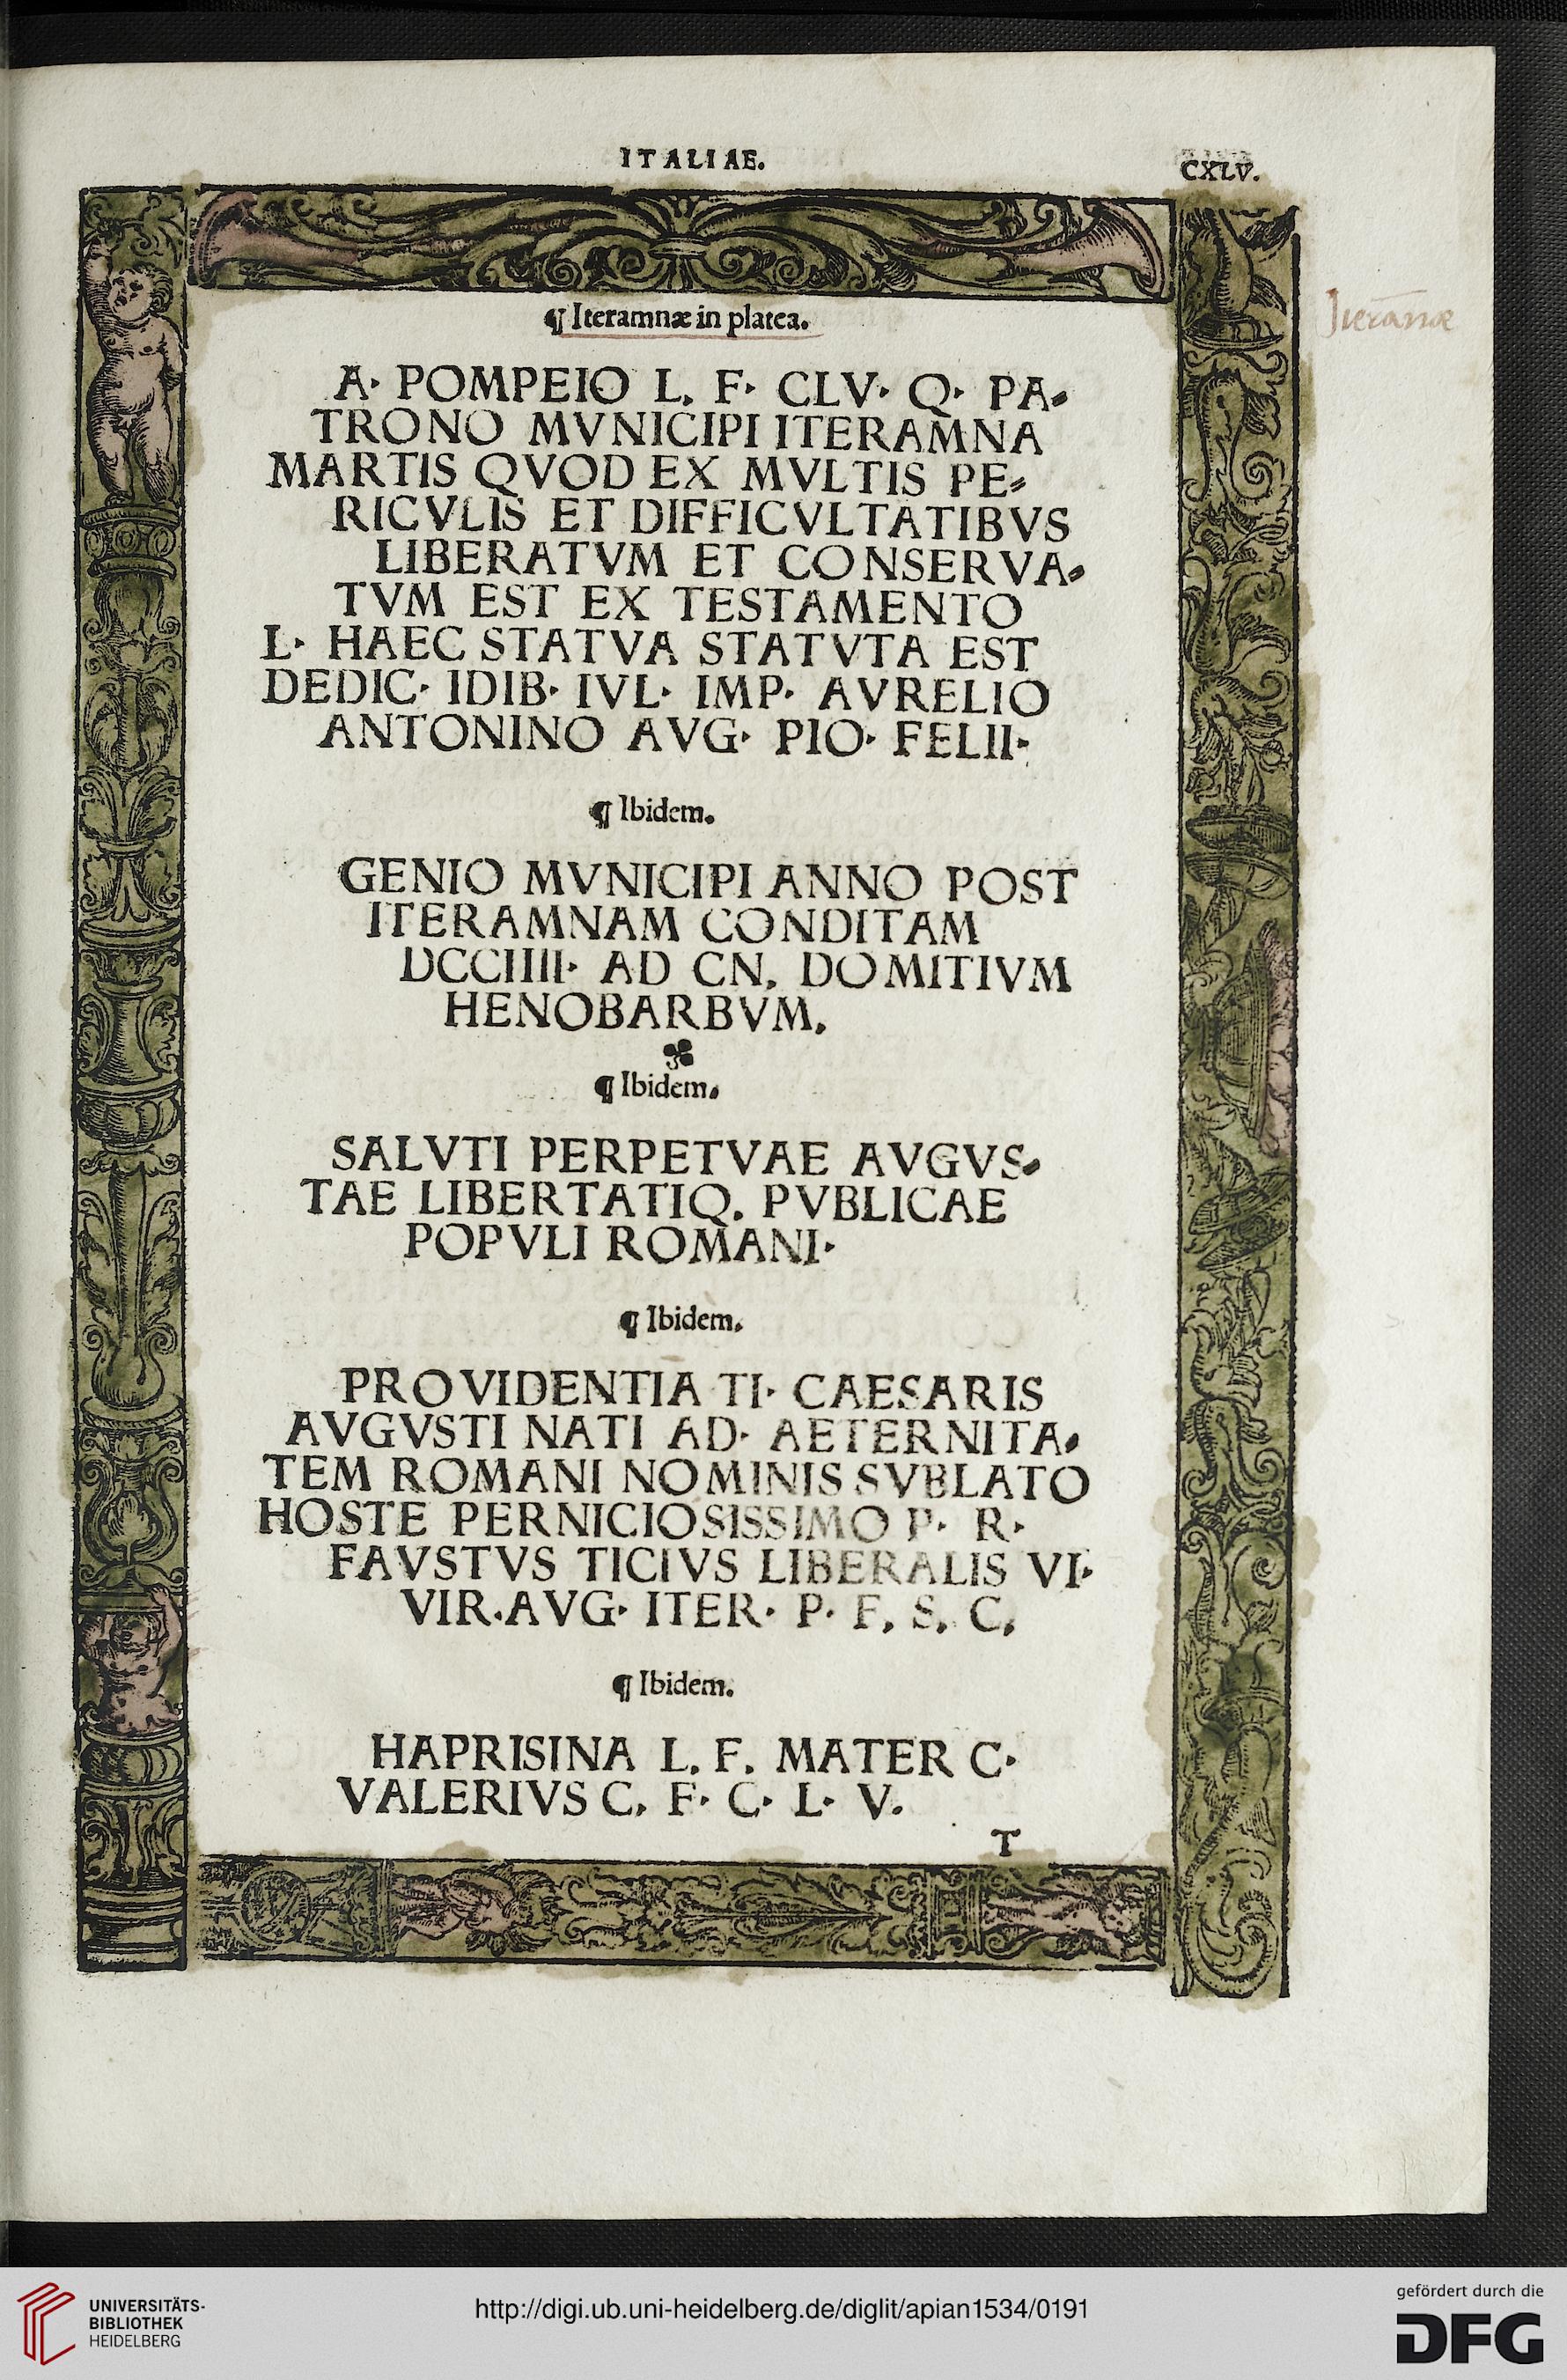 ITALIAE.
CXLV.
¶ Iteramnæ in platea.
A· POMPEIO L. F· CLV· Q· PA⸗
TRONO MVNICIPI ITERAMNA
MARTIS QVOD EX MVLTIS PE⸗
RICVLIS ET DIFFICVLTATIBVS
LIBERATVM ET CONSERVA⸗
TVM EST EX TESTAMENTO
L· HAEC STATVA STATVTA EST
DEDIC· IDIB· IVL· IMP· AVRELIO
ANTONINO AVG· PIO· FELII·
¶ Ibidem.
GENIO MVNICIPI ANNO POST
ITERAMNAM CONDITAM
DCCIIII· AD CN. DOMITIVM
HENOBARBVM.
¶ Ibidem.
SALVTI PERPETVAE AVGVS⸗
TAE LIBERTATIQ. PVBLICAE
POPVLI ROMANI·
¶ Ibidem.
PROVIDENTIA TI· CAESARIS
AVGVSTI NATI AD· AETERNITA⸗
TEM ROMANI NOMINIS SVBLATO
HOSTE PERNICIOSISSIMO P· R·
FAVSTVS TICIVS LIBERALIS VI·
VIR.AVG· ITER· P· F. S. C.
¶ Ibidem.
HAPRISINA L. F. MATER C·
VALERIVS C. F· C· L· V.
T
UNIVERSITÄTS-
BIBLIOTHEK
HEIDELBERG
http://digi.ub.uni-heidelberg.de/diglit/apian1534/0191
gefördert durch die
DFG